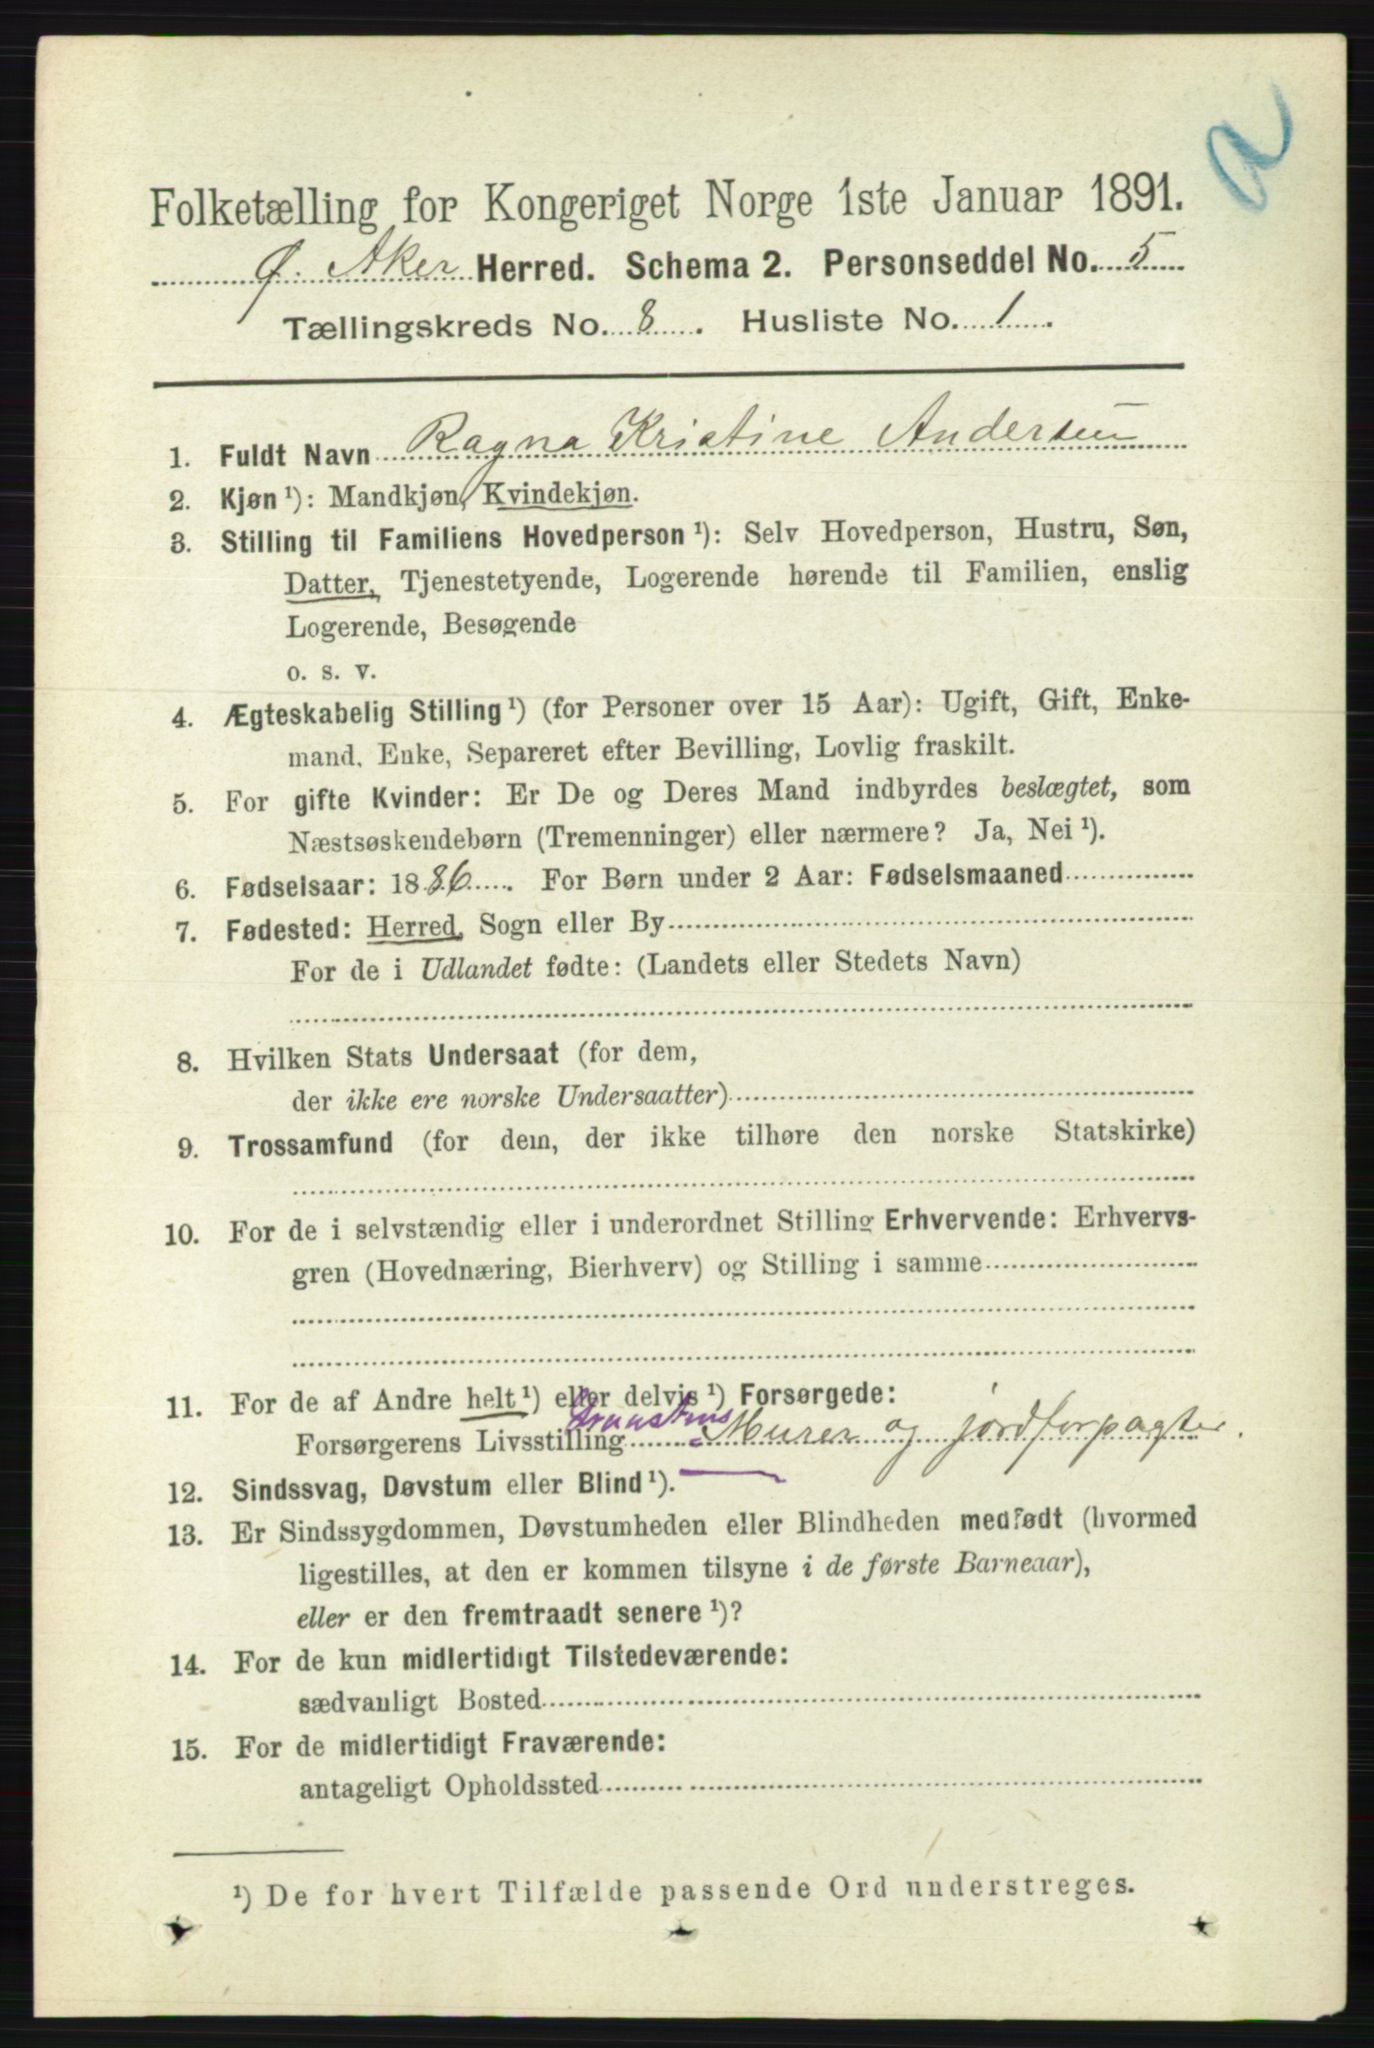 a
Folketælling for Kongeriget Norge 1ste Januar 1891.
Ø. Aker Herred. Schema 2. Personseddel No. 5
Tællingskreds No. 8. Husliste No. 1.
1. Fuldt Navn Ragna Kristine Andersen
2. Kjøn ¹): Mandkjøn, Kvindekjøn.
3. Stilling til Familiens Hovedperson ¹): Selv Hovedperson, Hustru, Søn,
Datter, Tjenestetyende, Logerende hørende til Familien, enslig
Logerende, Besøgende
o. s. v.
4. Ægteskabelig Stilling ¹) (for Personer over 15 Aar): Ugift, Gift, Enke-
mand, Enke, Separeret efter Bevilling, Lovlig fraskilt.
5. For gifte Kvinder: Er De og Deres Mand indbyrdes beslægtet, som
Næstsøskendebørn (Tremenninger) eller nærmere? Ja, Nei ¹).
6. Fødselsaar: 1886. For Børn under 2 Aar: Fødselsmaaned
7. Fødested: Herred, Sogn eller By
For de i Udlandet fødte: (Landets eller Stedets Navn)
8. Hvilken Stats Undersaat (for dem,
der ikke ere norske Undersaatter)
9. Trossamfund (for dem, der ikke tilhøre den norske Statskirke)
10. For de i selvstændig eller i underordnet Stilling Erhvervende: Erhvervs-
gren (Hovednæring, Bierhverv) og Stilling i samme
11. For de af Andre helt ¹) eller delvis ¹) Forsørgede:
Forsørgerens Livsstilling Murer og jordforpagter.
12. Sindssvag, Døvstum eller Blind ¹).
13. Er Sindssygdommen, Døvstumheden eller Blindheden medfødt (hvormed
ligestilles, at den er kommen tilsyne i de første Barneaar),
eller er den fremtraadt senere ¹)?
14. For de kun midlertidigt Tilstedeværende:
sædvanligt Bosted
15. For de midlertidigt Fraværende:
antageligt Opholdssted
¹) De for hvert Tilfælde passende Ord understreges.